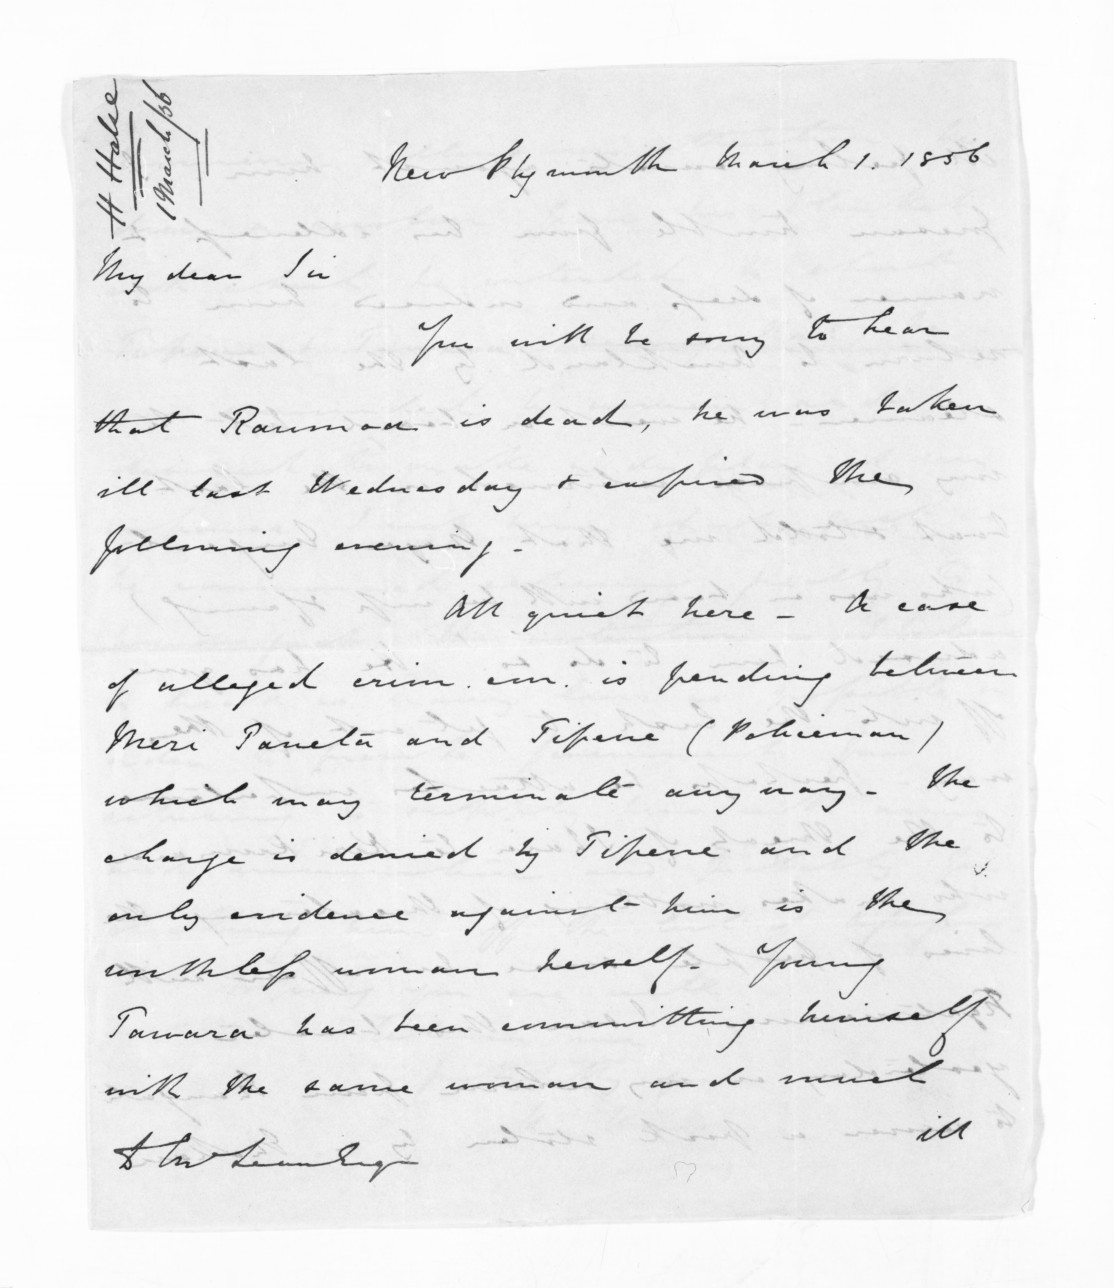 H Halse
1 March/56
New Plymouth March 1. 1856
My dear Sir
You will be sorry to hear
that Raumoa is dead, he was taken
ill last Wednesday & expired the
following evening -
All quiet here - A case
of alleged crim. con. is pending between
Meri Paneta and Tipene (Policeman)
which may terminate any way - The
charge is denied by Tipene and the
only evidence against him is the
worthless woman herself - Young
Tawara has been committing himself
with the same woman and much
ill
D McLean Esqr